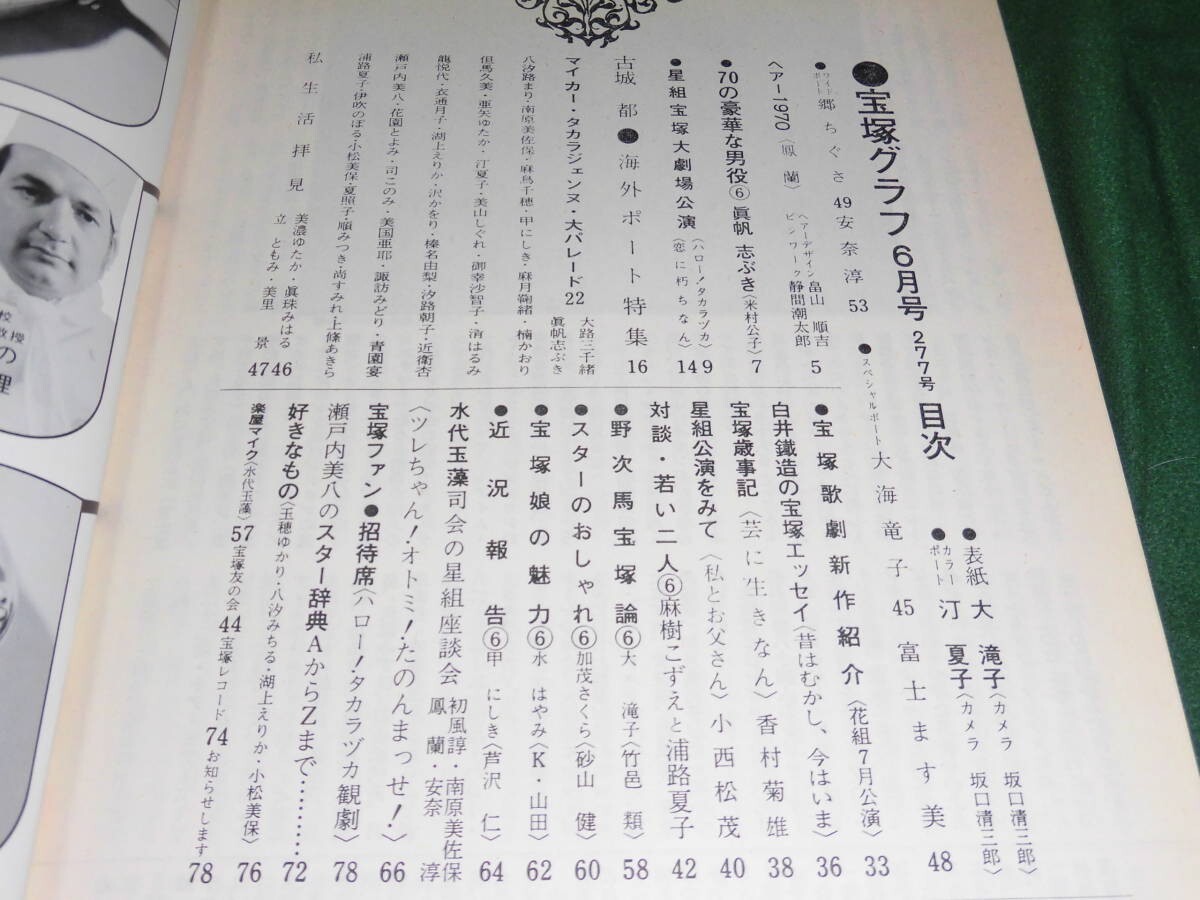 ●宝塚グラフ6月号 277号 目次
●表紙 大 滝子〈カメラ 坂口清三郎〉
●カラーポート 汀 夏子〈カメラ 坂口清三郎〉
●スペシャルポート 大海竜子 45 富士ます美 48
●ワイドポート 郷ちぐさ 49 安奈淳 53
ヘアー1970〈鳳蘭〉 ヘアーデザイン 畠山順吉 ピンワーク 静間潮太郎 5
●70の豪華な男役⑥ 眞帆志ぶき〈米村公子〉 7
●星組宝塚大劇場公演〈ハロー!タカラヅカ〉 9
〈恋に朽ちなん〉 14
古城都●海外ポート特集 16
マイカー・タカラジェンヌ・大パレード 22
大路三千緒
眞帆志ぶき
八汐路まり・南原美佐保・麻鳥千穂・甲にしき・麻月鞠緒・楠かおり
但馬久美・亜矢ゆたか・汀夏子・美山しぐれ・御幸沙智子・清はるみ
龍悦代・衣通月子・湖上えりか・沢かをり・榛名由梨・汐路朝子・近衛杏
瀬戸内美八・花園とよみ・司このみ・美国亜耶・諏訪みどり・青園宴
浦路夏子・伊吹のぼる・小松美保・夏照子・順みつき・尚すみれ・上條あきら
私生活拝見 美濃ゆたか・眞珠みはる 46
立ともみ・美里景 47
●宝塚歌劇新作紹介〈花組7月公演〉 33
白井鐵造の宝塚エッセイ〈昔はむかし、今はいま〉 36
宝塚歳事記〈芸に生きなん〉香村菊雄 38
星組公演をみて〈私とお父さん〉小西松茂 40
対談・若い二人⑥麻樹こずえと浦路夏子 42
●野次馬宝塚論⑥大 滝子〈竹邑 類〉 58
●スターのおしゃれ⑥加茂さくら〈砂山 健〉 60
●宝塚娘の魅力⑥水 はやみ〈K・山田〉 62
●近況報告⑥甲 にしき〈芦沢 仁〉 64
水代玉藻司会の星組座談会 初風諄・南原美佐保
鳳 蘭・安奈 淳
〈ツレちゃん!オトミ!たのんまっせ!〉 66
宝塚ファン●招待席〈ハロー!タカラヅカ観劇〉 78
瀬戸内美八のスター辞典AからZまで……… 72
好きなもの〈玉穂ゆかり・八汐みちる・湖上えりか・小松美保〉 76
楽屋マイク〈水代玉藻〉 57 宝塚友の会 44 宝塚レコード 74 お知らせします 78
校
教授
の
理